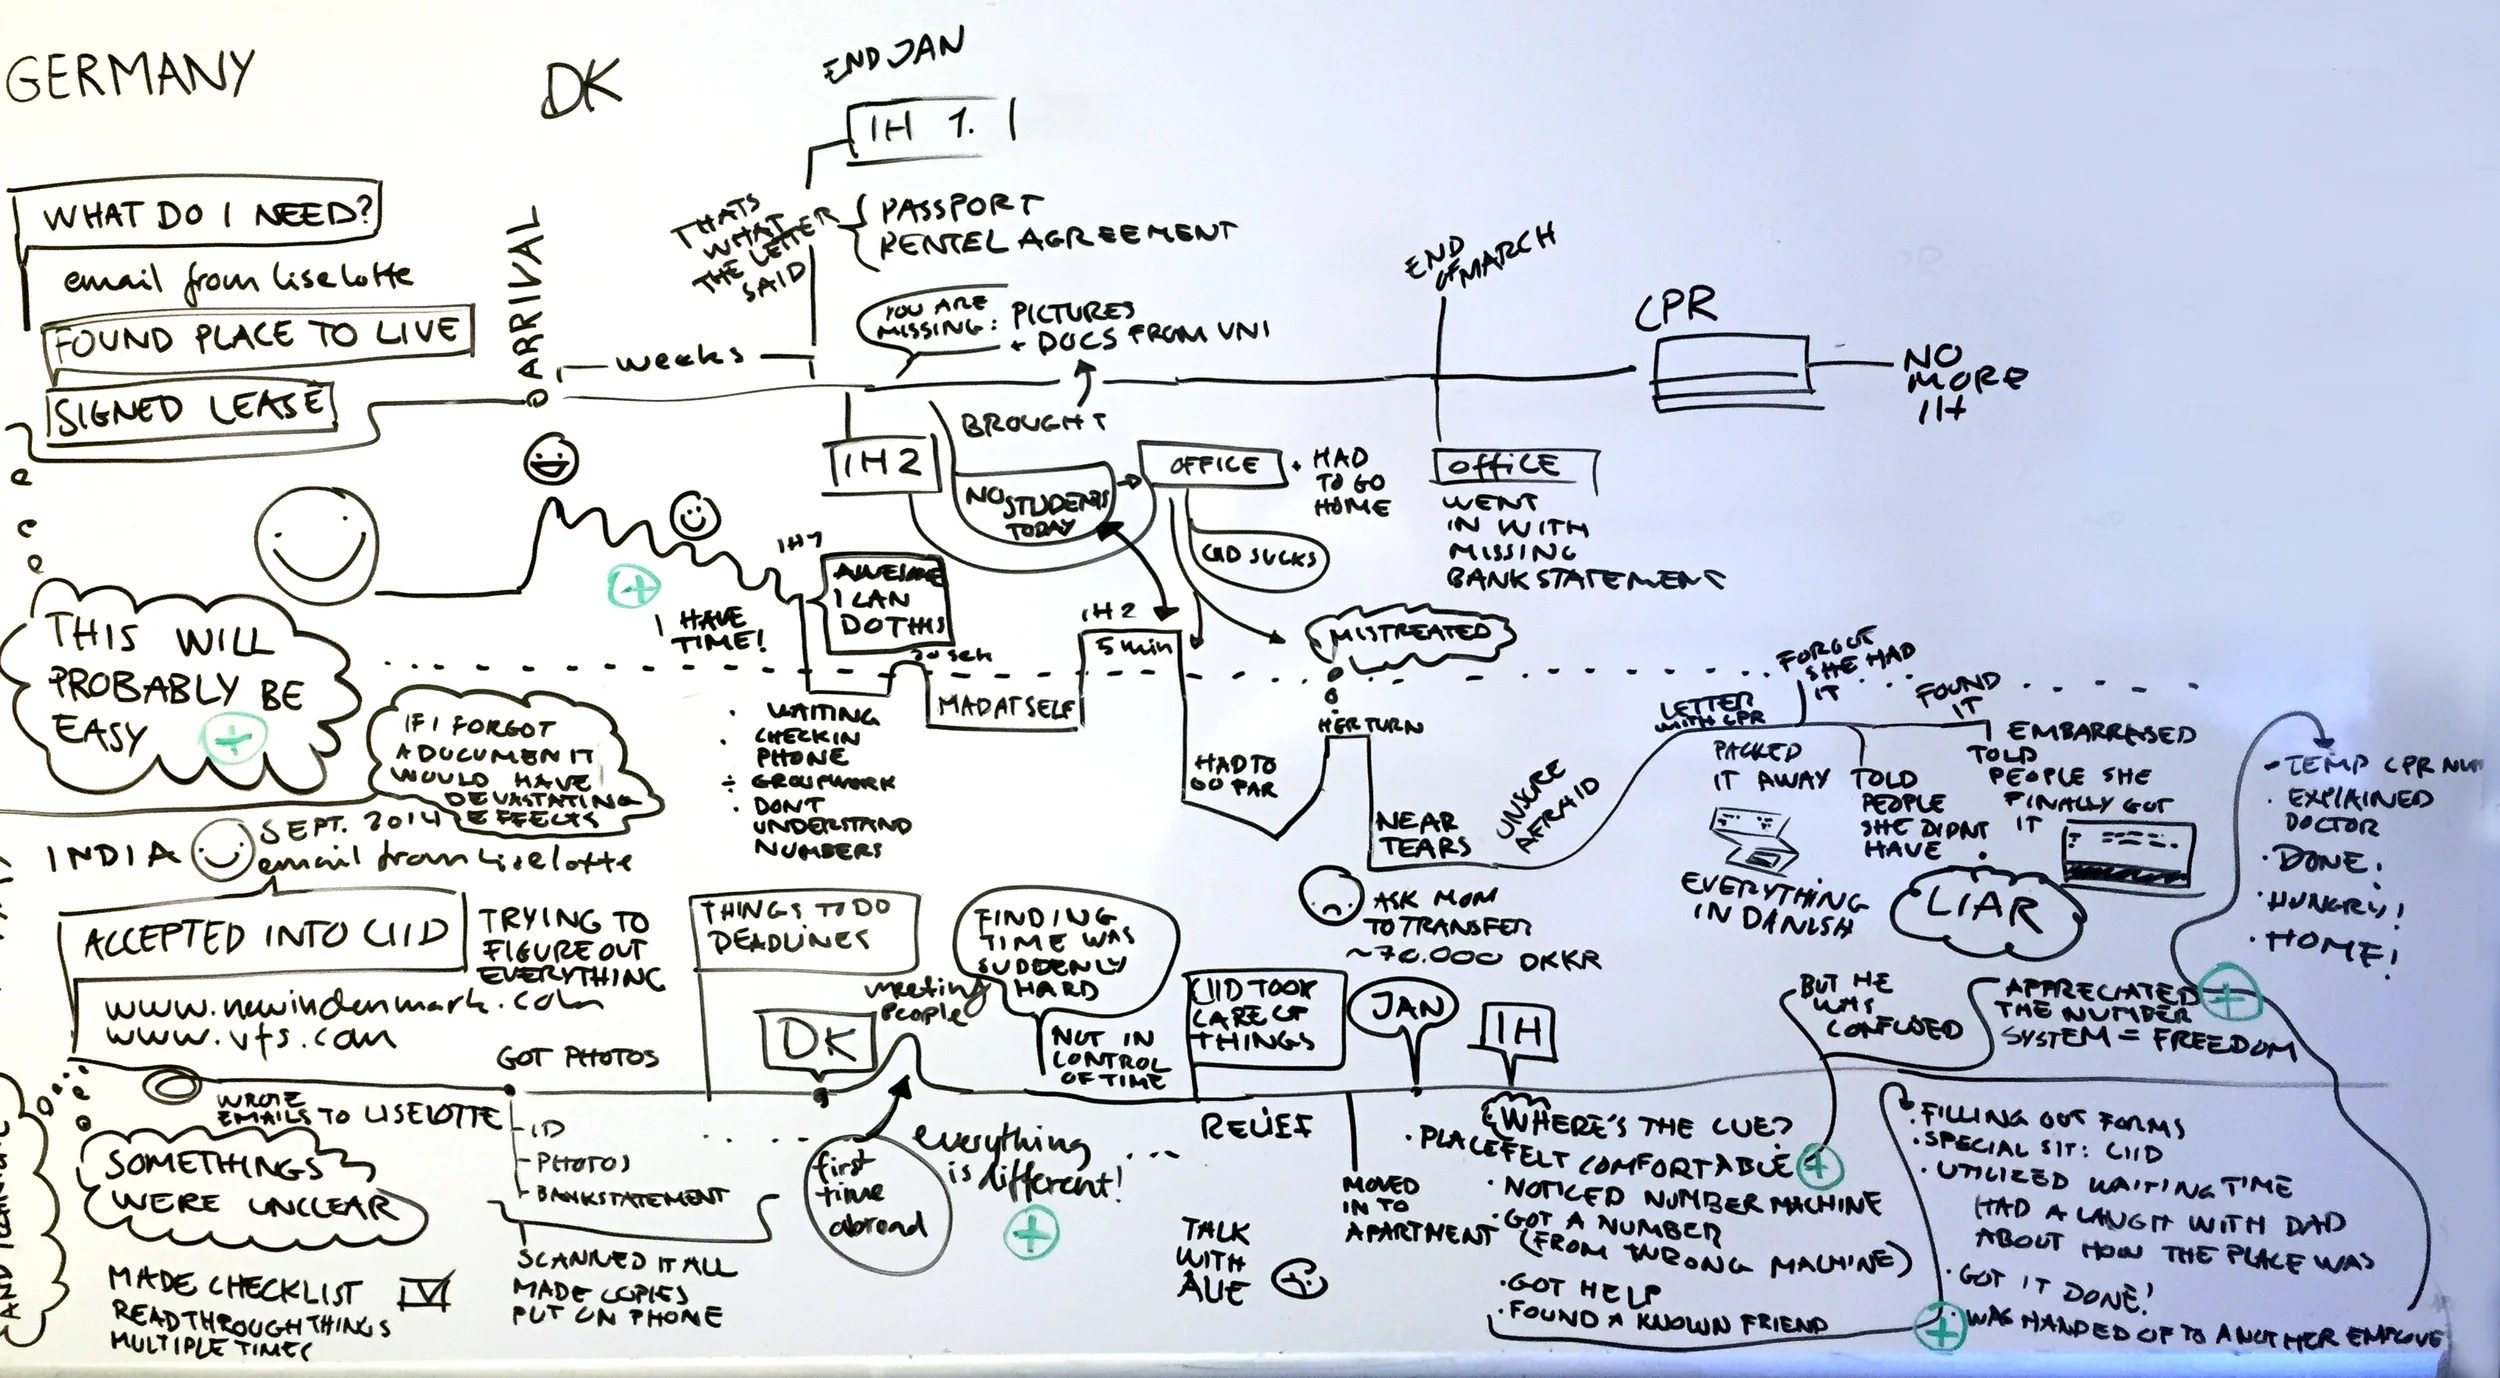 GERMANY
DK
END JAN
IH 1.
WHAT DO I NEED?
email from liselotte
FOUND PLACE TO LIVE
SIGNED LEASE
ARRIVAL
weeks
THATS
WHAT
THE LETTER
SAID
PASSPORT
RENTEL AGREEMENT
YOU ARE
MISSING:
PICTURES
+ DOCS FROM UNI
BROUGHT
END
OF MARCH
CPR
NO
MORE
IH
IH2
NO STUDENTS
TODAY
OFFICE
+ HAD
TO GO
HOME
CIID SUCKS
OFFICE
WENT
IN WITH
MISSING
BANK STATEMENT
THIS WILL
PROBABLY BE
EASY
I HAVE
TIME!
IH1
AWESOME
I CAN
DO THIS
30 sek
MAD AT SELF
IH2
5 min
MISTREATED
HAD TO
GO FAR
HER TURN
NEAR
TEARS
UNSURE
AFRAID
LETTER
WITH CPR
FORGOT
SHE HAD
IT
FOUND
IT
PACKED
IT AWAY
TOLD
PEOPLE
SHE DIDNT
HAVE
EMBARRASED
TOLD
PEOPLE SHE
FINALLY GOT
IT
EVERYTHING
IN DANISH
LIAR
IF I FORGOT
A DOCUMEN IT
WOULD HAVE
DEVASTATING
EFFECTS
· WAITING
· CHECKIN
PHONE
÷ GROUPWORK
· DON'T
UNDERSTAND
NUMBERS
ASK MOM
TO TRANSFER
~70.000 DKKR
- TEMP CPR NUM
· EXPLAINED
DOCTOR
· DONE!
· HUNGRY!
· HOME!
INDIA
SEPT. 2014
email from Liselotte
ACCEPTED INTO CIID
TRYING TO
FIGURE OUT
EVERYTHING
www.newindenmark.com
www.vfs.com
WROTE
EMAILS TO LISELOTTE
SOMETHINGS
WERE UNCLEAR
MADE CHECKLIST
READ THROUGH THINGS
MULTIPLE TIMES
GOT PHOTOS
- ID
- PHOTOS
- BANKSTATEMENT
SCANNED IT ALL
MADE COPIES
PUT ON PHONE
THINGS TO DO
DEADLINES
DK
meeting
people
FINDING
TIME WAS
SUDDENLY
HARD
NOT IN
CONTROL
OF TIME
first
time
abroad
everything
is different!
CIID TOOK
CARE OF
THINGS
RELIEF
TALK
WITH
JAN
MOVED
IN TO
APARTMENT
IH
WHERE'S THE CUE?
· PLACE FELT COMFORTABLE
· NOTICED NUMBER MACHINE
· GOT A NUMBER
(FROM WRONG MACHINE)
· GOT HELP
· FOUND A KNOWN FRIEND
BUT HE
WAS
CONFUSED
APPRECIATED
THE NUMBER
SYSTEM = FREEDOM
· FILLING OUT FORMS
· SPECIAL SIT: CIID
· UTILIZED WAITING TIME
HAD A LAUGH WITH DAD
ABOUT HOW THE PLACE WAS
· GOT IT DONE!
· WAS HANDED OF TO ANOTHER EMPLOYE